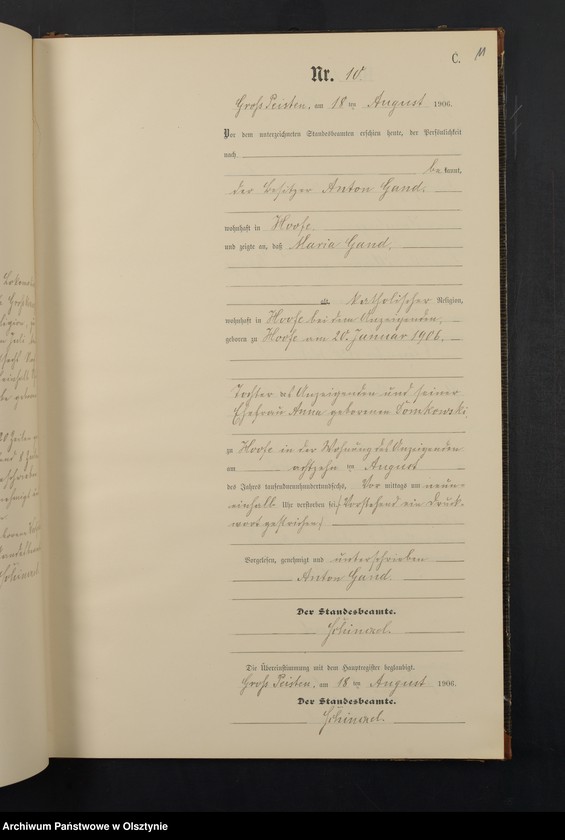 C. 11
Nr. 10
Groß Peisten, am 18 ten August 1906.
Vor dem unterzeichneten Standesbeamten erschien heute, der Persönlichkeit
nach
be kannt,
der Besitzer Anton Gand,
wohnhaft in Hoofe
und zeigte an, daß Maria Gand,
katholischer Religion,
wohnhaft in Hoofe bei dem Anzeigenden,
geboren zu Hoofe am 20. Januar 1906,
Tochter des Anzeigenden und seiner
Ehefrau Anna geborenen Tomkowski
zu Hoofe in der Wohnung des Anzeigenden
am achtzehn ten August
des Jahres tausendneunhundertundsechs, Vor mittags um neun-
einhalb Uhr verstorben sei. (Vorstehend ein Druck-
wort gestrichen)
Vorgelesen, genehmigt und unterschrieben
Anton Gand.
Der Standesbeamte.
Die Übereinstimmung mit dem Hauptregister beglaubigt.
Groß Peisten, am 18 ten August 1906.
Der Standesbeamte.
Archiwum Państwowe w Olsztynie